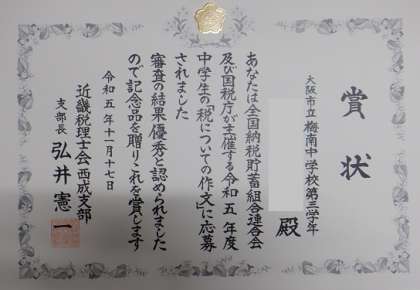 賞状
大阪市立梅南中学校第三学年
殿
あなたは全国納税貯蓄組合連合会
及び国税庁が主催する令和五年度
中学生の「税についての作文」に応募
されました
審査の結果優秀と認められました
ので記念品を贈りこれを賞します
令和五年十一月十七日
近畿税理士会西成支部
支部長 弘井憲一